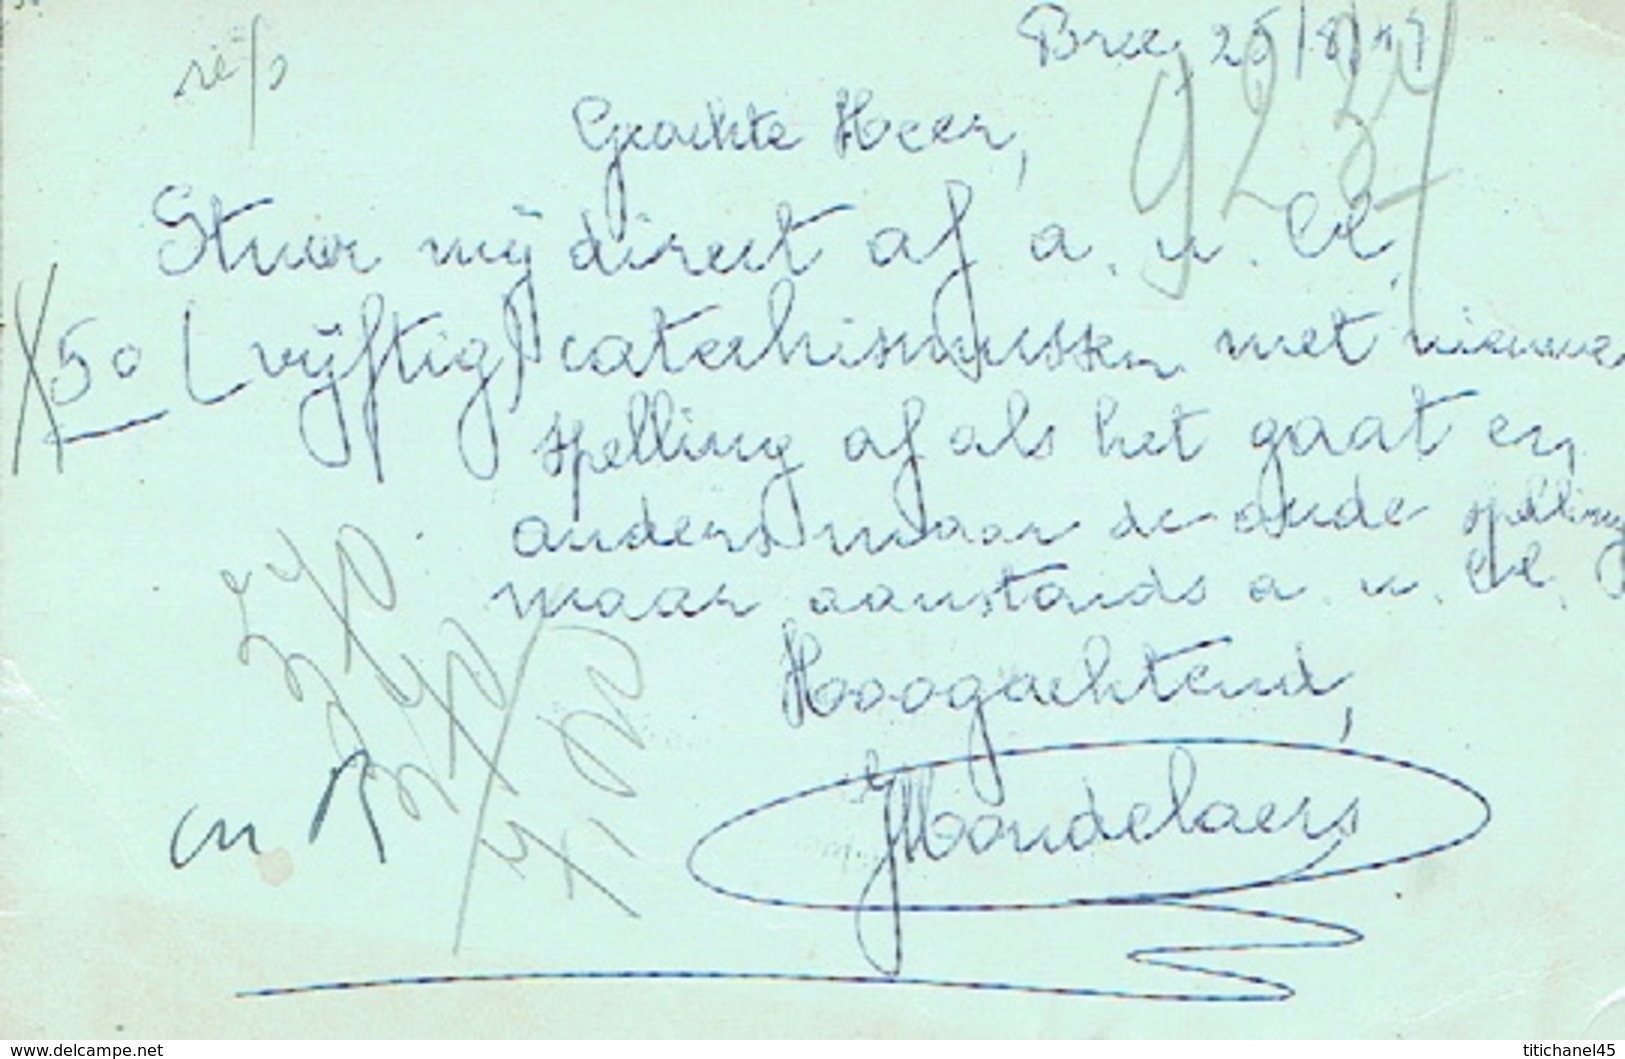 Bree, 25/8/47
rép
9237
Geachte Heer,
Stuur mij direct af a. u. bl.
50 (vijftig) catechismussen met nieuwe
spelling af als het gaat en
anders maar de oude spelling
maar aanstonds a. u. bl.
Hoogachtend,
www.delcampe.net
titichanel45